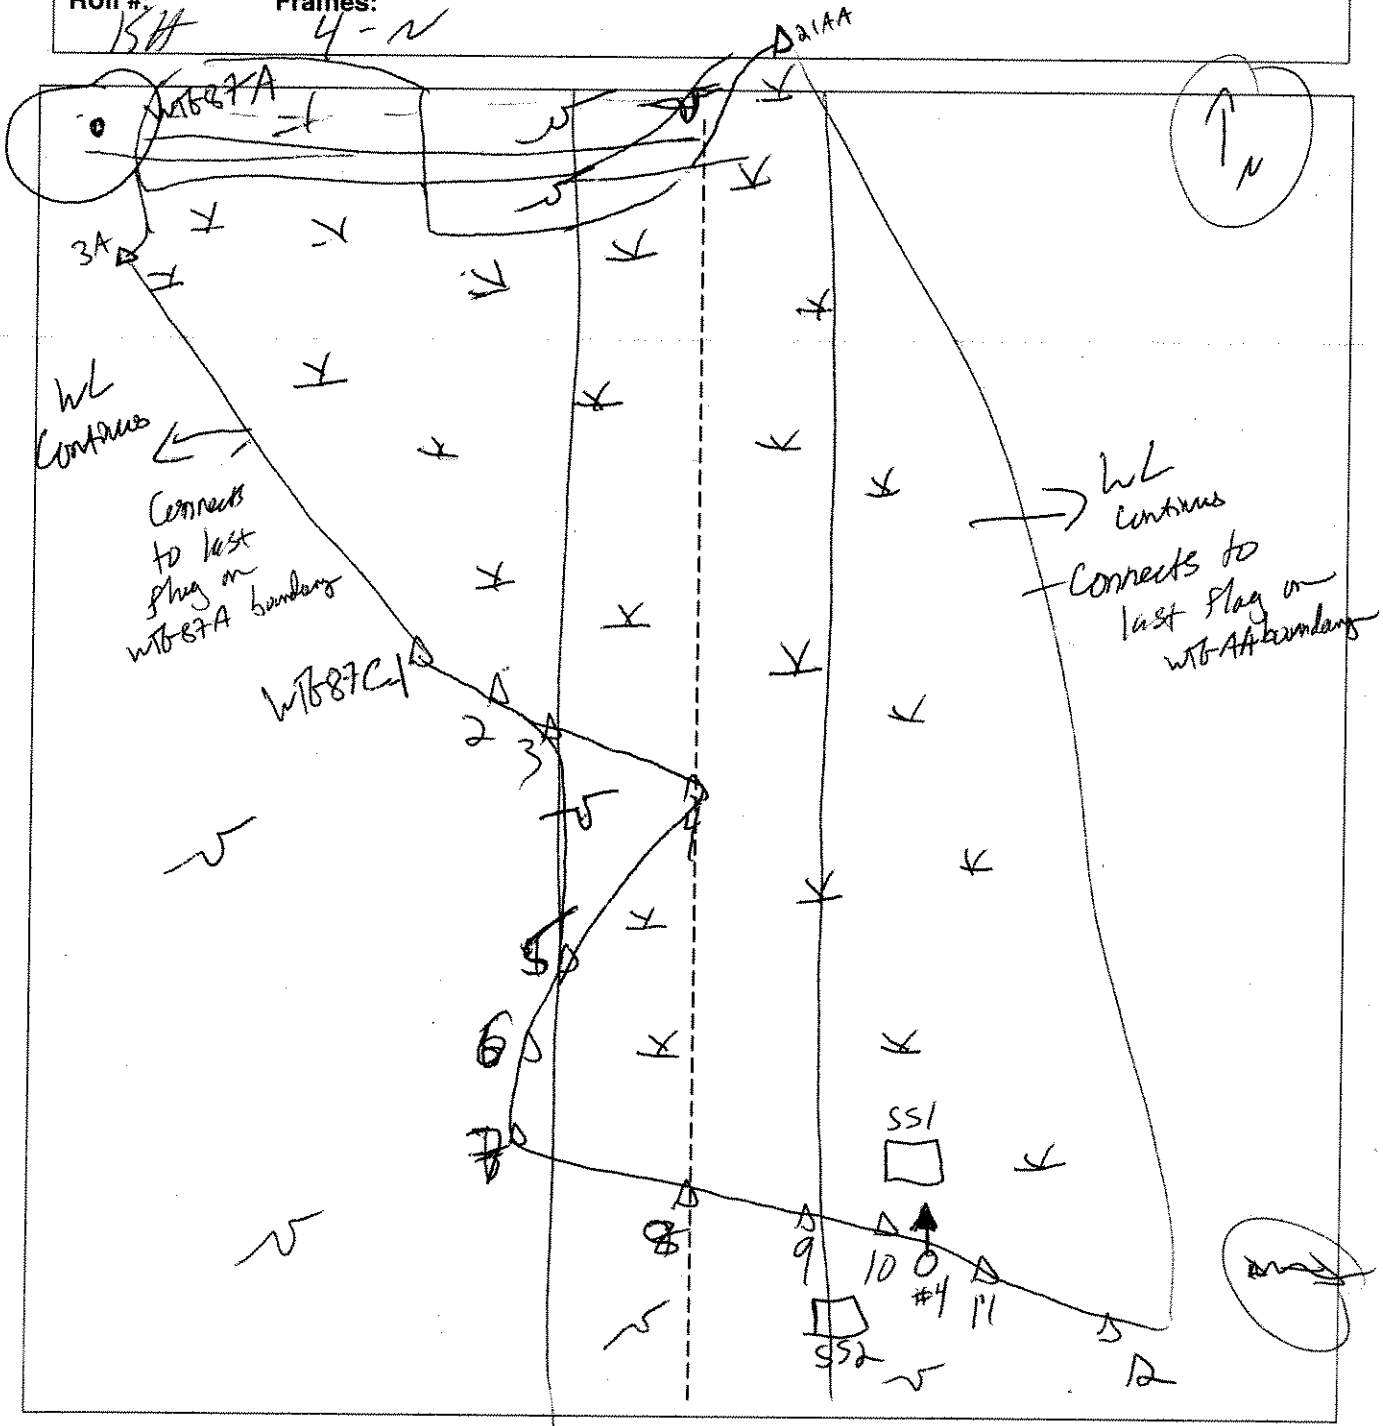 Roll #:
Frames:
15H
4-N
21AA
WTB87A
N
3A
WL
Continues
Connects
to last
flag on
WTB87A boundary
WL
Continues
Connects to
last flag on
WTB-AA boundary
WTB87C-1
2
3
4
5
6
7
SS1
8
9
10
#4
11
12
SS2